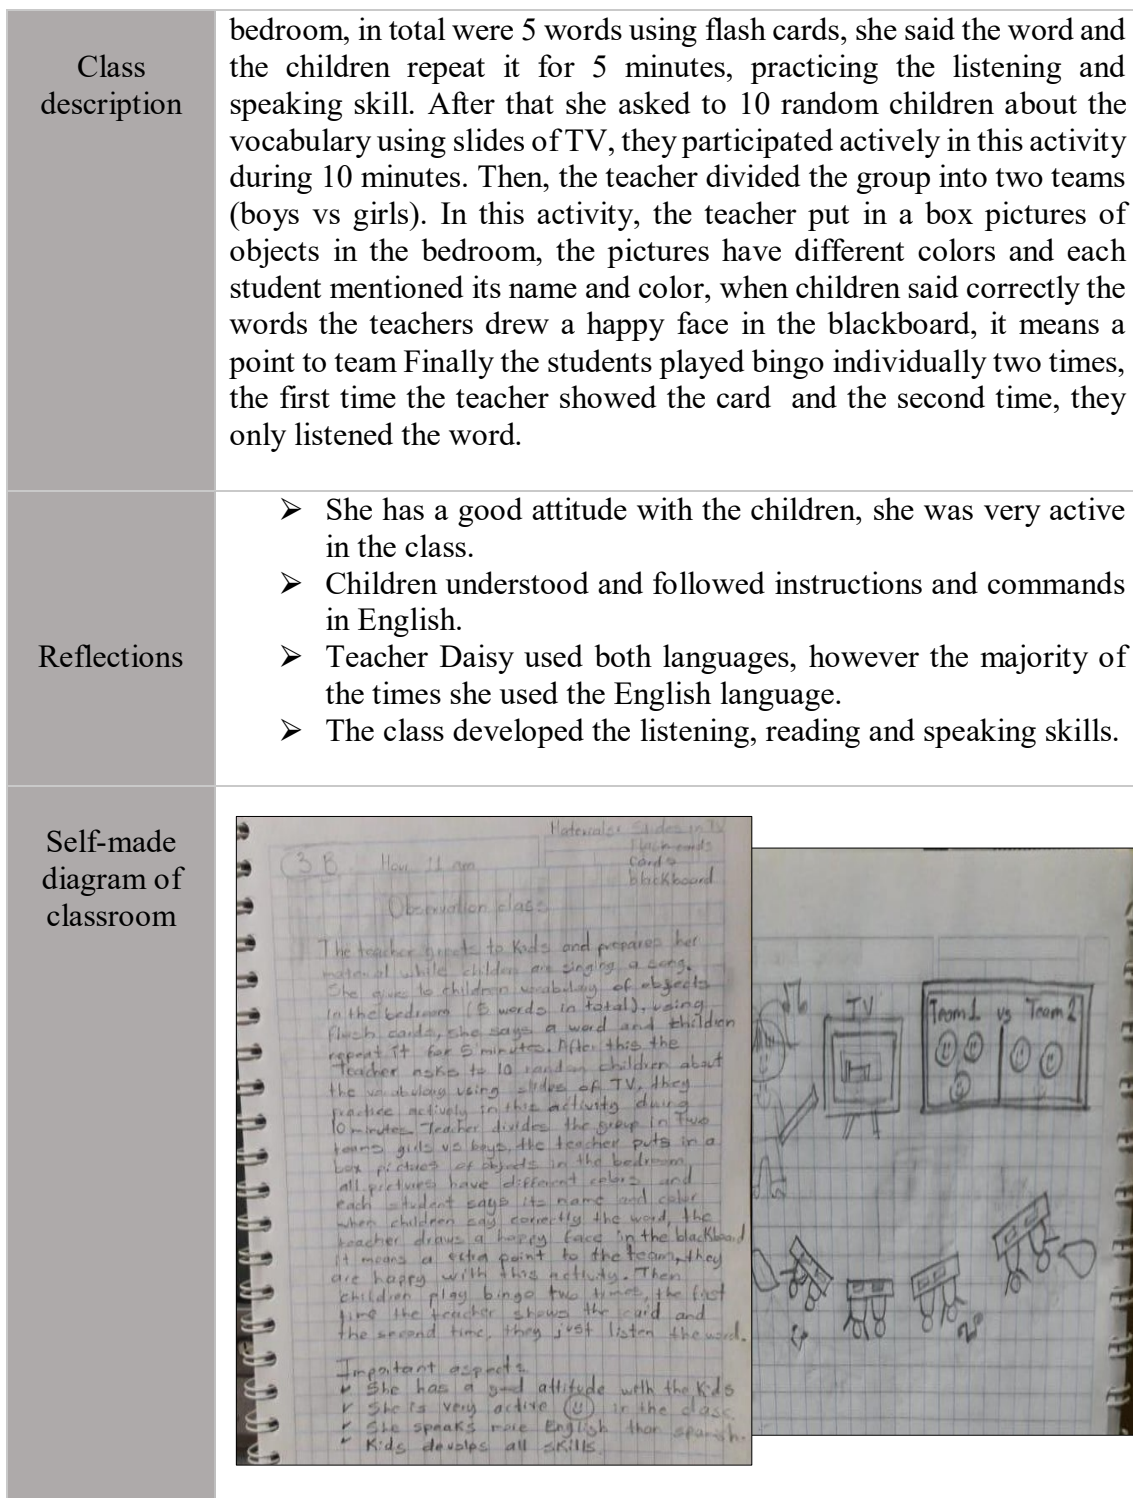 Class
description
bedroom, in total were 5 words using flash cards, she said the word and
the children repeat it for 5 minutes, practicing the listening and
speaking skill. After that she asked to 10 random children about the
vocabulary using slides of TV, they participated actively in this activity
during 10 minutes. Then, the teacher divided the group into two teams
(boys vs girls). In this activity, the teacher put in a box pictures of
objects in the bedroom, the pictures have different colors and each
student mentioned its name and color, when children said correctly the
words the teachers drew a happy face in the blackboard, it means a
point to team Finally the students played bingo individually two times,
the first time the teacher showed the card and the second time, they
only listened the word.
Reflections
➢ She has a good attitude with the children, she was very active
in the class.
➢ Children understood and followed instructions and commands
in English.
➢ Teacher Daisy used both languages, however the majority of
the times she used the English language.
➢ The class developed the listening, reading and speaking skills.
Self-made
diagram of
classroom
Materials: Slides in TV
Flash cards
cards
blackboard
3 B. 11 am
Observation class
The teacher greets to kids and prepares her
material while children are singing a song.
She gives to children vocabulary of objects
in the bedroom (5 words in total), using
flash cards, she says a word and children
repeat it for 5 minutes. After this the
teacher asks to 10 random children about
the vocabulary using slides of TV, they
practice actively in this activity during
10 minutes. Teacher divides the group in two
teams girls vs boys, the teacher puts in a
box pictures of objects in the bedroom
all pictures have different colors and
each student says its name and color
when children say correctly the word, the
teacher draws a happy face in the blackboard
it means a extra point to the team, they
are happy with this activity. Then
children play bingo two times, the first
time the teacher shows the card and
the second time, they just listen the word.
Important aspects
✓ She has a good attitude with the kids
✓ She is very active in the class.
✓ She speaks more English than spanish.
✓ Kids develps all skills.
TV
Team 1 vs Team 2